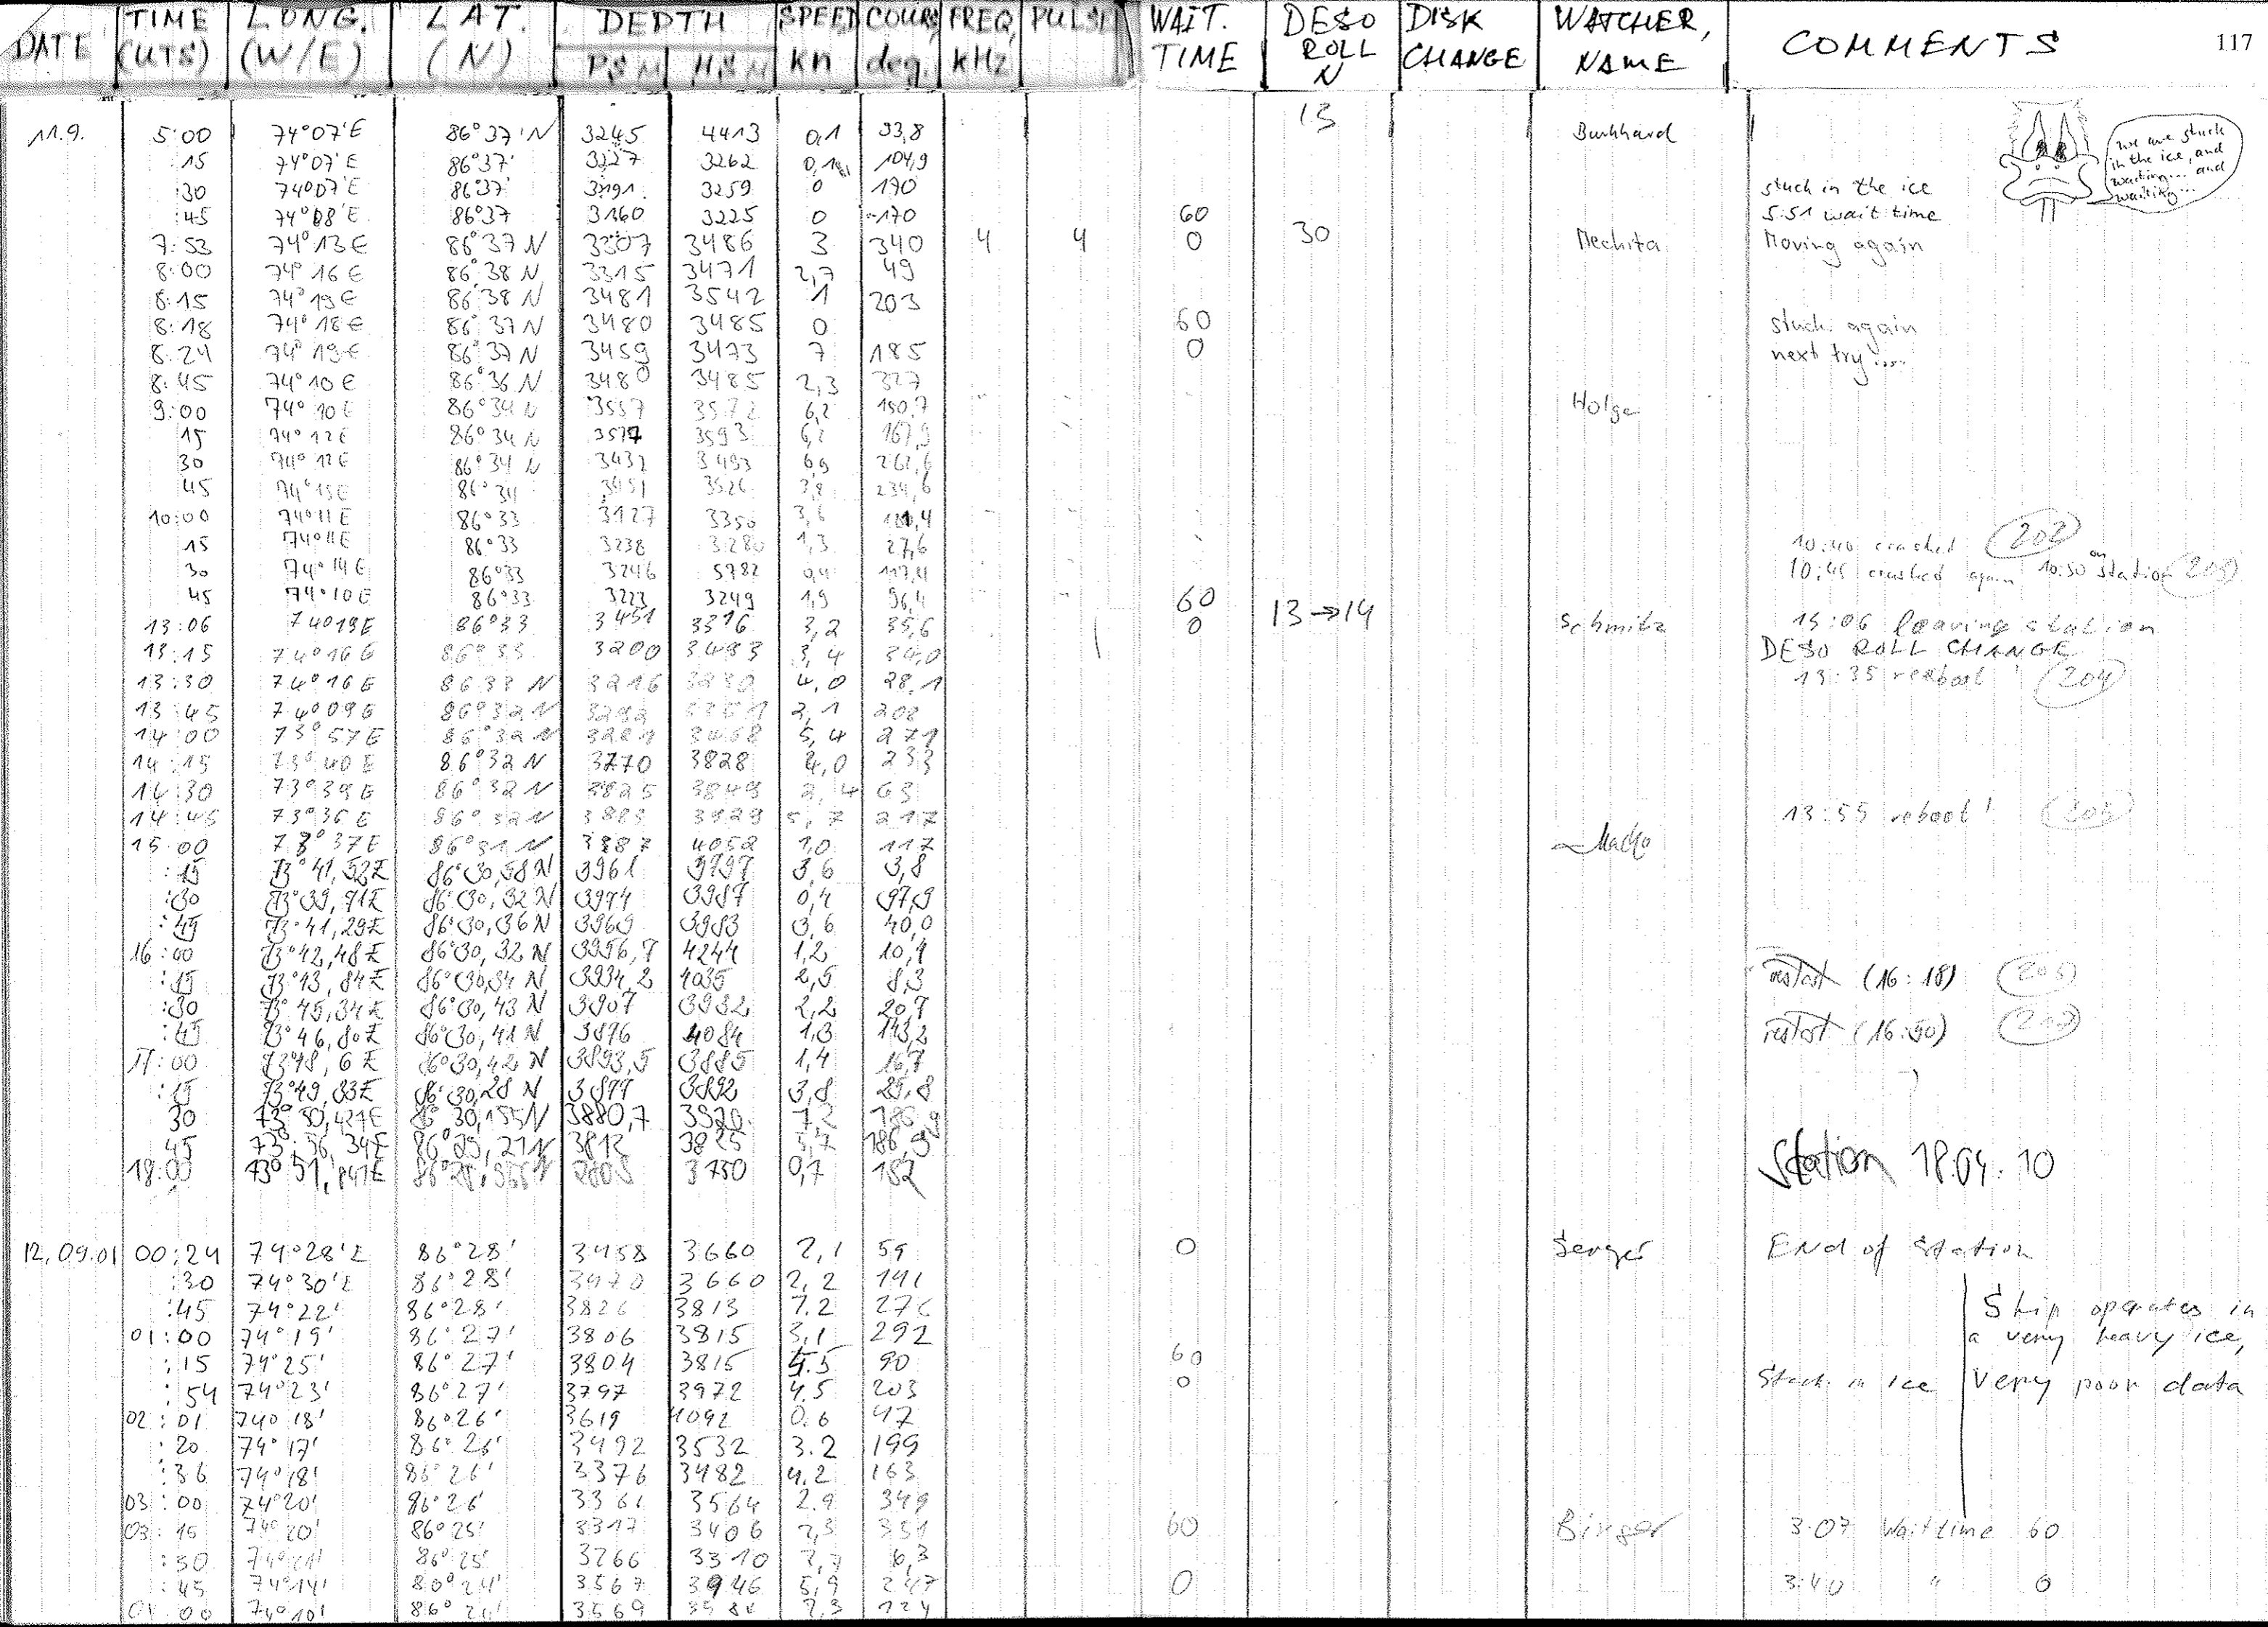 DATE TIME (UTS) LONG. (W/E) LAT. (N) DEPTH PS M HS M SPEED kn COURS deg. FREQ. kHz PULSE WAIT. TIME DESO ROLL N DISK CHANGE WATCHER, NAME COMMENTS 117
13
11.9. 5:00 74°07'E 86°37'N 3245 4413 0,1 93,8 Burkhard
we are stuck in the ice, and waiting... and waiting...
:15 74°07'E 86°37' 3227 3262 104,9
:30 74°07'E 86°37' 3259 0 170 stuck in the ice
:45 74°08'E 86°37 3160 3225 0 170 60 5:51 wait time
7:53 74°13E 86°37N 3307 3486 3 340 4 4 0 30 Mechita Moving again
8:00 74°16E 86°38N 3315 3471 2,7 49
8:15 74°19E 86°38N 3481 3542 1 203
8:18 74°18E 86°37N 3480 3485 0 60 stuck again
8:24 74°19E 86°37N 3459 3473 7 185 0 next try....
8:45 74°10E 86°36N 3480 3485 2,3 327
9:00 74°10E 86°34N 3557 3572 6,2 150,7 Holger
15 74°12E 86°34N 3577 3593 6,2 167,9
30 74°12E 86°34N 3432 3493 262,6
45 74°15E 86°34 3451 3526 3,8 234,6
10:00 74°11E 86°33 3127 3350 3,6
15 74°11E 86°33 3238 3280 1,3 27,6 10:40 crashed (202)
30 74°14E 86°33 3246 5782 0,4 117,4 10:45 crashed again 10:50 on station (203)
45 74°10E 86°33 3223 3249 1,9 96,4 60
13:06 74°19E 86°33 3451 3376 3,2 35,6 0 13→14 Schmitz 13:06 leaving station
13:15 74°16E 86°33 3200 3493 3,4 34,0 DESO ROLL CHANGE
13:30 74°16E 86°33 N 3216 3230 4,0 28,1 13:35 reboot! (204)
13:45 74°09E 86°32N 3292 3351 2,1 208
14:00 73°57E 86°32N 3468 5,4 271
14:15 73°40E 86°32N 3770 3828 4,0 233
14:30 73°39E 86°32N 3825 3849 2,4 63
14:45 73°36E 86°32N 3883 3929 5,7 217 13:55 reboot! (205)
15:00 73°37E 86°31N 3887 4052 1,0 117
:15 73°41,52E 86°30,58N 3961 3797 3,6 3,8
:30 73°39,71E 86°30,32N 3974 3987 0,4 97,9
:45 73°41,29E 86°30,36N 3969 3983 3,6 40,0
16:00 73°42,48E 86°30,32N 3956,7 4244 1,2 10,4
:15 73°43,84E 86°30,34N 3934,2 4035 2,5 8,3 restart (16:18) (206)
:30 73°45,34E 86°30,43N 3907 3932 2,2 20,7
:45 73°46,80E 86°30,41N 3896 4084 1,3 143,2 restart (16:50) (207)
17:00 73°48,6E 86°30,42N 3893,5 3885 1,4 16,7
:15 73°49,83E 86°30,28N 3877 3892 3,8 25,8
30 73°50,427E 86°30,155N 3880,7 3920 7,2
45 73°56,34E 86°29,21N 3812 3825 5,7 186,9
18:00 73°51,841E 3750 0,7 182 Station 18:04.10
12.09.01 00:24 74°28'E 86°28' 3458 3660 2,1 59 0 Serger End of Station
:30 74°30'E 86°28' 3470 3660 2,2 141
:45 74°22' 86°28' 3826 3813 7.2 276 Ship operates in
01:00 74°19' 86°27' 3806 3815 3,1 292 a very heavy ice,
:15 74°25' 86°27' 3804 3815 4.5 90 60
:54 74°23' 86°27' 3797 3972 4.5 203 0 Stuck in ice very poor data
02:01 74°18' 86°26' 3619 4092 0.6 47
:20 74°17' 86°26' 3492 3532 3.2 199
:36 74°18' 86°26' 3376 3482 4.2 163
03:00 74°20' 86°26' 3361 3564 2.9 349
03:15 74°20' 86°25' 3317 3406 2,3 351 60 Birger 3:07 Waittime 60
:30 74°21' 86°25' 3266 3310 2,7 6,3
:45 74°14' 86°24' 3567 3946 5,9 247 0 3:40 " 0
04:00 74°10' 86°24' 3569 7,3 124